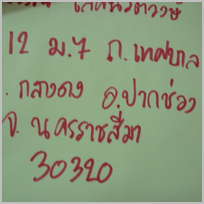 12 ม.7 ถ.เทศบาล
. กลางดง อ.ปากช่อง
จ. นครราชสีมา
30320